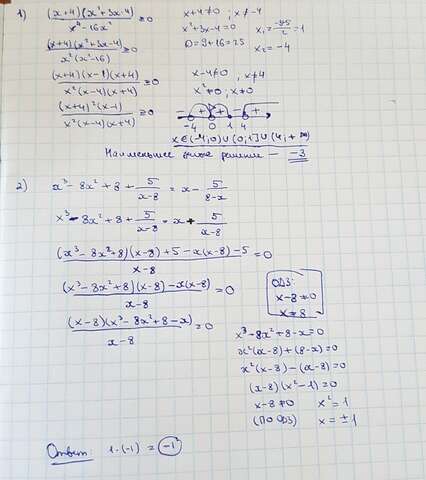 1) (x+4)(x²+3x-4) / x⁴-16x² ≥0
x+4≠0; x≠-4
x²+3x-4=0
D=9+16=25
x₂=-4
(x+4)(x²+3x-4) / x²(x²-16) ≥0
(x+4)(x-1)(x+4) / x²(x-4)(x+4) ≥0
x-4≠0, x≠4
x²≠0; x≠0
(x+4)²(x-1) / x²(x-4)(x+4) ≥0
- + - +
-4 0 1 4
x∈(-4;0)∪(0;1]∪(4;+∞)
Наименьшее целое решение — -3
2) x³-8x²+8+ 5/(x-8) = x- 5/(8-x)
x³-8x²+8+ 5/(x-8) = x+ 5/(x-8)
(x³-8x²+8)(x-8)+5-x(x-8)-5 / x-8 =0
(x³-8x²+8)(x-8)-x(x-8) / x-8 =0
ОДЗ:
x-8≠0
x≠8
(x-8)(x³-8x²+8-x) / x-8 =0
x³-8x²+8-x=0
x²(x-8)+(8-x)=0
x²(x-8)-(x-8)=0
(x-8)(x²-1)=0
x-8≠0 x²=1
(по ОДЗ) x=±1
Ответ: 1·(-1) = -1